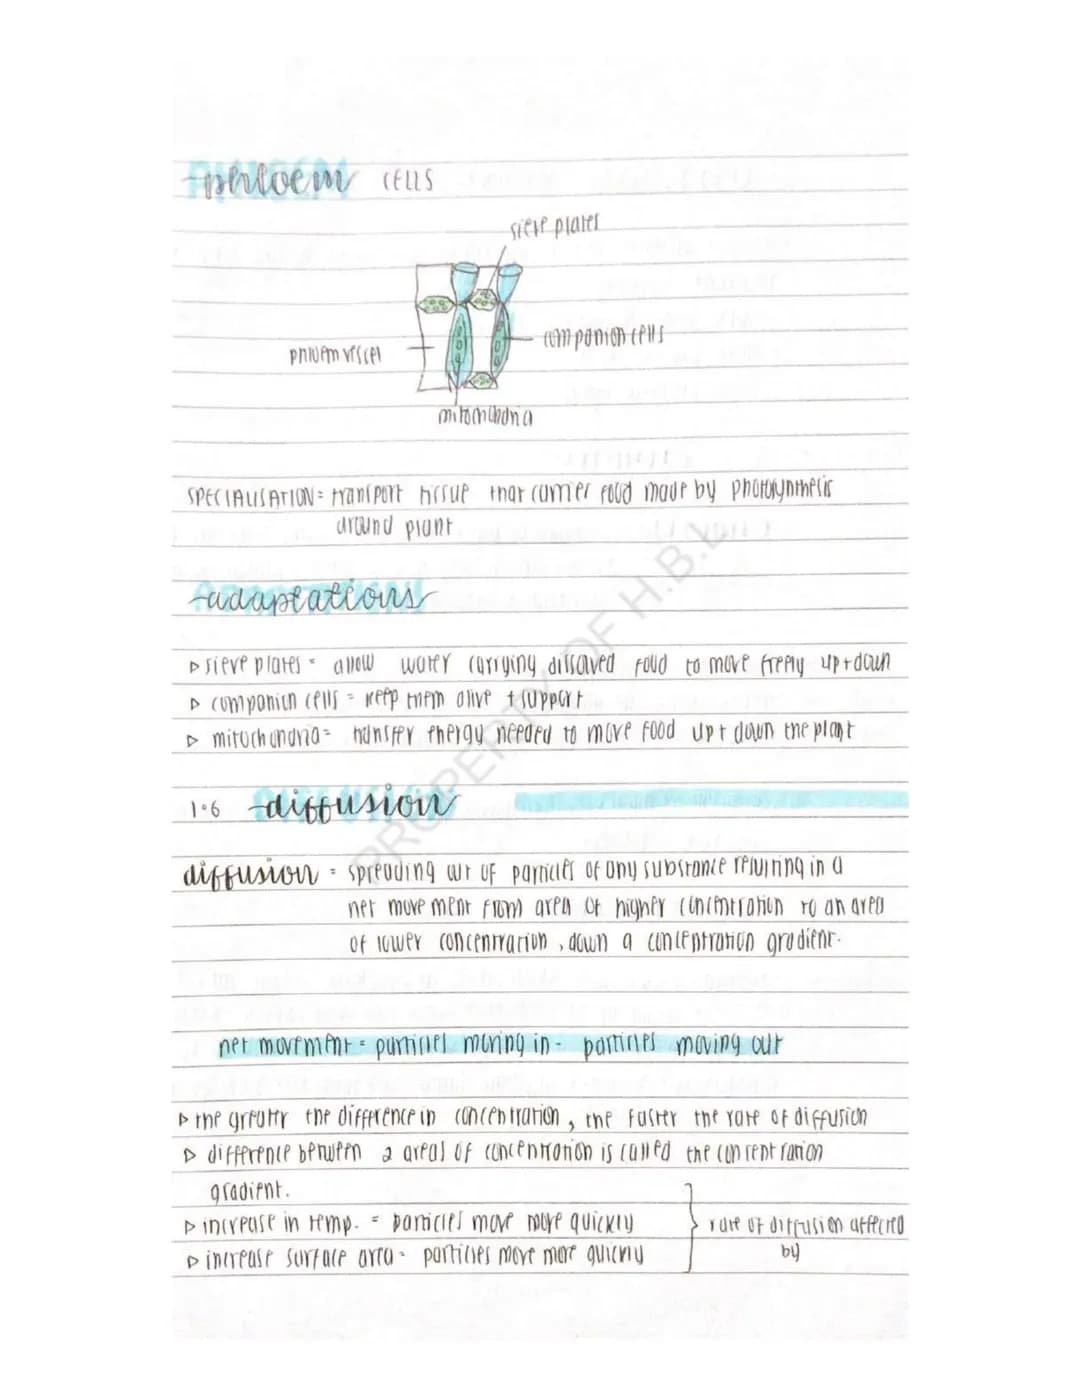 phloem CELLS
sieve plates
companion cells
phloem vessel
mitochondria
SPECIALISATION = transport tissue that carries food made by photosynthesis
around plant
adaptations
▷ sieve plates = allow water carrying dissolved food to move freely up + down
▷ companion cells = keep them alive + support
▷ mitochondria = transfer energy needed to move food up + down the plant
1.6 diffusion
diffusion = spreading out of particles of any substance resulting in a
net movement from area of higher concentration to an area
of lower concentration, down a concentration gradient.
net movement = particles moving in - particles moving out
▷ the greater the difference in concentration, the faster the rate of diffusion
▷ difference between 2 areas of concentration is called the concentration
gradient.
▷ increase in temp. = particles move more quickly
▷ increase surface area = particles move more quickly
rate of diffusion affected
by
PROPERTY OF H.B.L